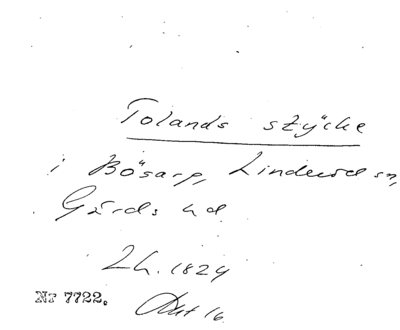 Tolands stycke
i Bösarp, Linderöd sn,
Gärds hd
Lh. 1824
Nr 7722. Akt 16